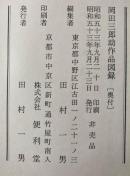 岡田三郎助作品図録〔奥付〕
昭和五十三年九月二十日　印刷　非売品
昭和五十三年九月二十三日　発行
東京都中野区江古田一ノ二十一ノ三
編集者　田村一男
京都市中京区新町通竹屋町南入
印刷者　株式会社　便利堂
発行者　田村一男